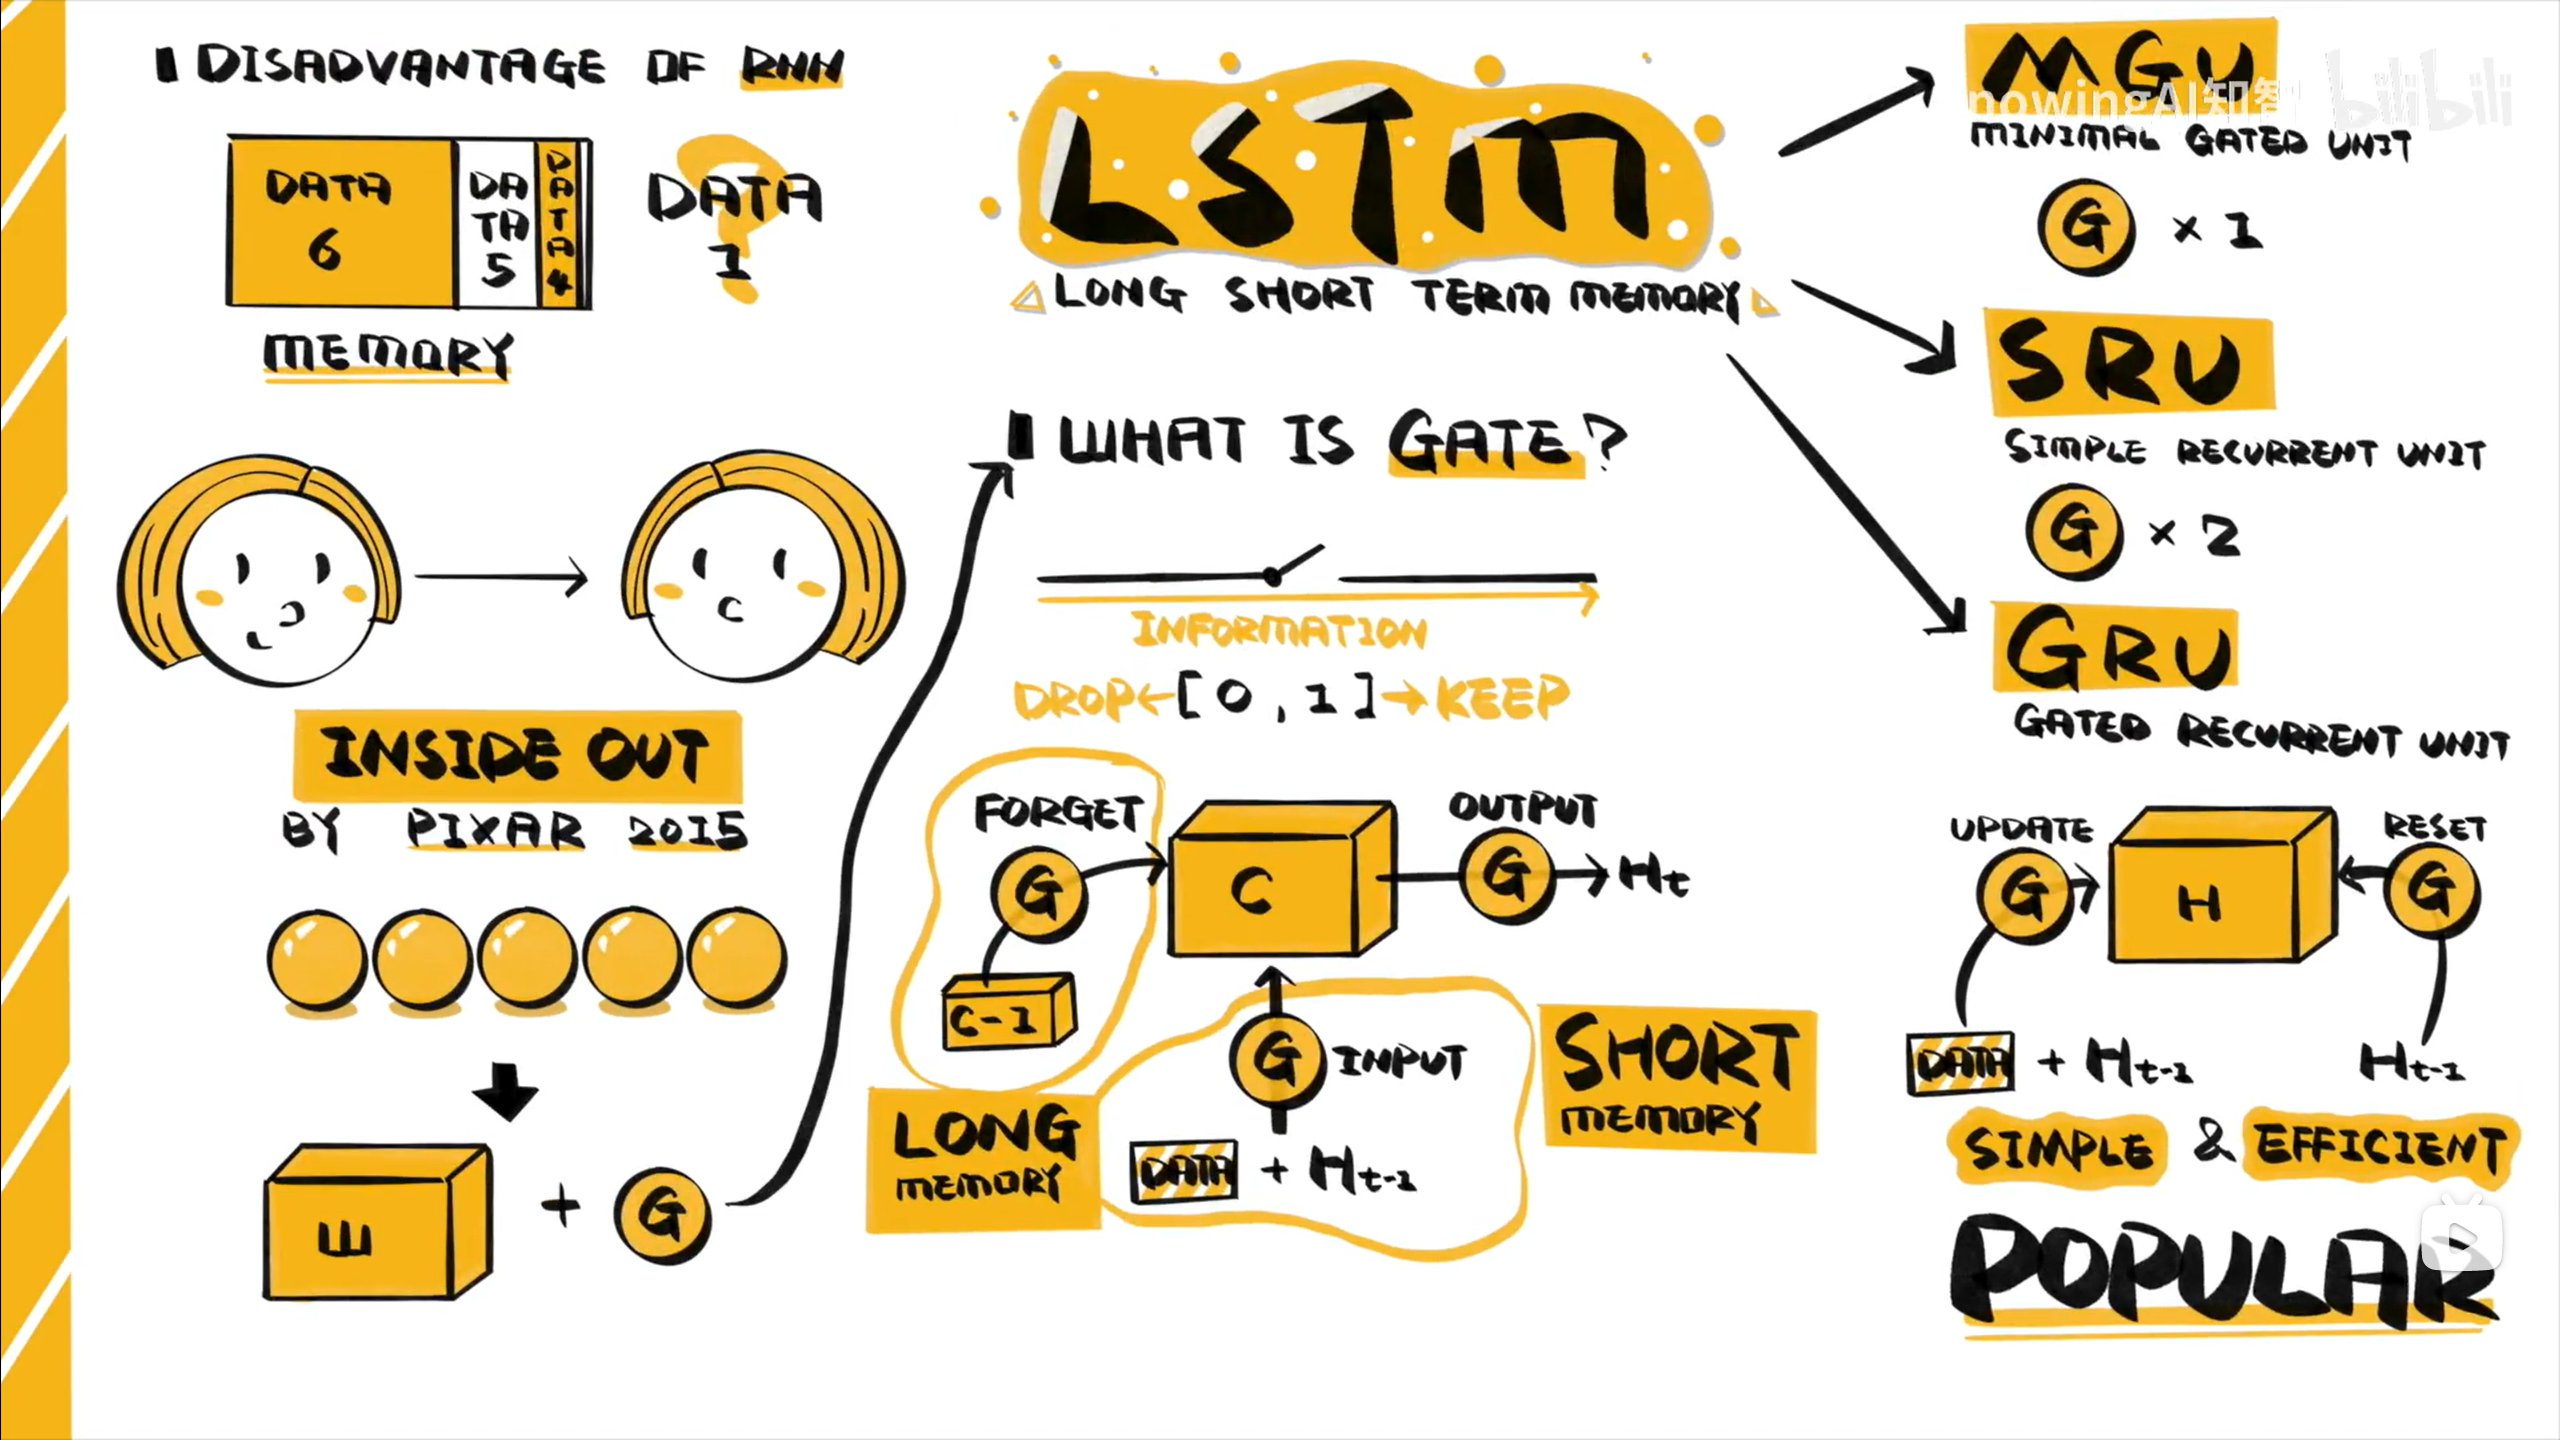 DISADVANTAGE OF RNN
DATA 6
DATA 5
DATA 4
DATA 1
MEMORY
INSIDE OUT
BY PIXAR 2015
W
+
G
LSTM
LONG SHORT TERM MEMORY
WHAT IS GATE?
INFORMATION
DROP←[0,1]→KEEP
FORGET
G
C-1
C
OUTPUT
G
Ht
G
INPUT
DATA + Ht-1
LONG
MEMORY
SHORT
MEMORY
MGU
nowingAI知智 bilibili
MINIMAL GATED UNIT
G × 1
SRU
SIMPLE RECURRENT UNIT
G × 2
GRU
GATED RECURRENT UNIT
UPDATE
G
H
RESET
G
DATA + Ht-1
Ht-1
SIMPLE & EFFICIENT
POPULAR